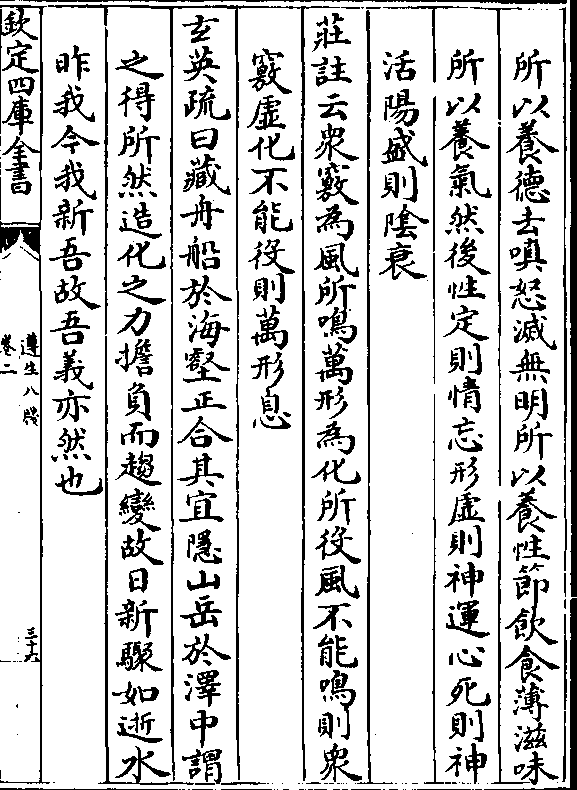 所以養德去嗔怒滅無明所以養性節飲食薄滋味
所以養氣然後性定則情忘形虛則神運心死則神
活陽盛則陰衰
莊註云衆竅為風所鳴萬形為化所役風不能鳴則衆
竅虛化不能役則萬形息
玄英疏曰藏舟船於海壑正合其宜隱山岳於澤中謂
之得所然造化之力擔負而趨變故日新驟如逝水
昨我今我新吾故吾義亦然也
欽定四庫全書
遵生八牋
卷二
三十六